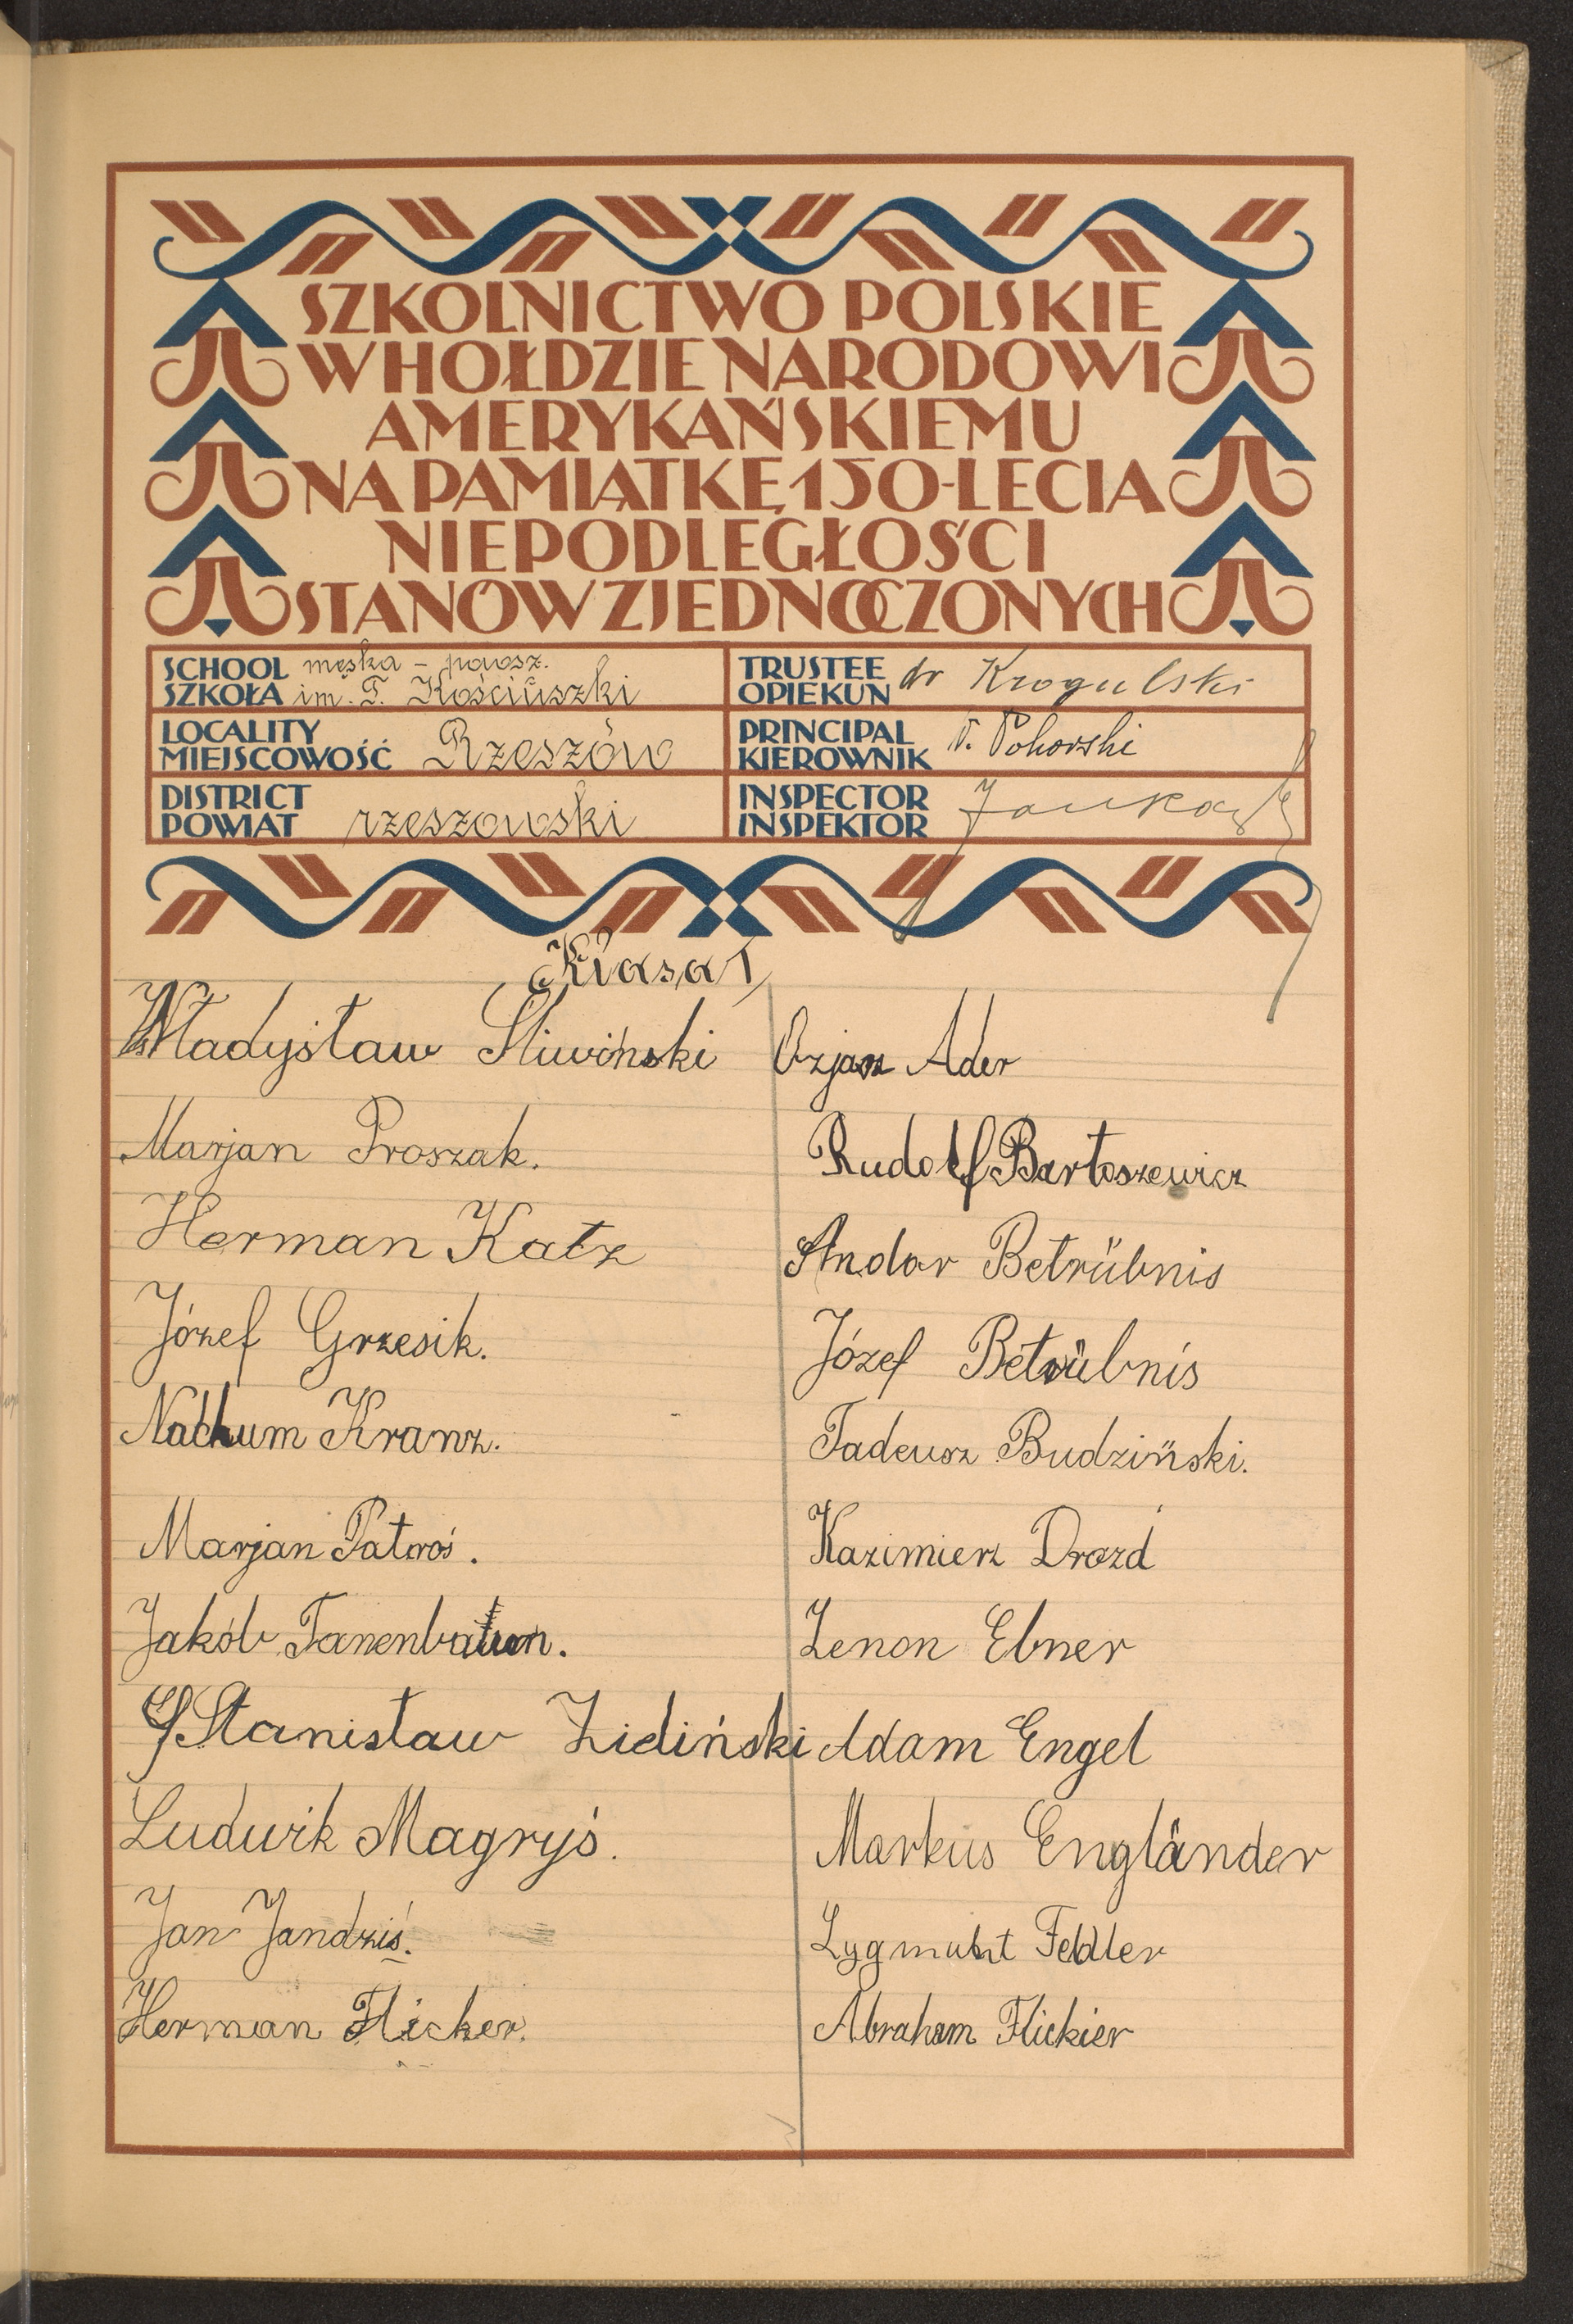 SZKOLNICTWO POLSKIE
W HOŁDZIE NARODOWI
AMERYKAŃSKIEMU
NA PAMIĄTKĘ 150-LECIA
NIEPODLEGŁOŚCI
STANÓW ZJEDNOCZONYCH
SCHOOL męska - powsz.
SZKOŁA im. T. Kościuszki
LOCALITY
MIEJSCOWOŚĆ Rzeszów
DISTRICT
POWIAT rzeszowski
TRUSTEE
OPIEKUN dr Krogulski
PRINCIPAL
KIEROWNIK Pohorski
INSPECTOR
INSPEKTOR
Klasa I
Władysław Śliwiński
Marjan Proszak.
Herman Katz
Józef Grzesik.
Nachum Kranz.
Marjan Patroś.
Jakób Tanenbaum.
Stanisław Zidiński
Ludwik Magryś.
Jan Jandziś.
Herman Flicker.
Ozjasz Ader
Rudolf Bartoszewicz
Andor Betrübnis
Józef Betrübnis
Tadeusz Budziński.
Kazimierz Drozd
Zenon Ebner
Adam Engel
Markus Engländer
Zygmunt Fedler
Abraham Flickier